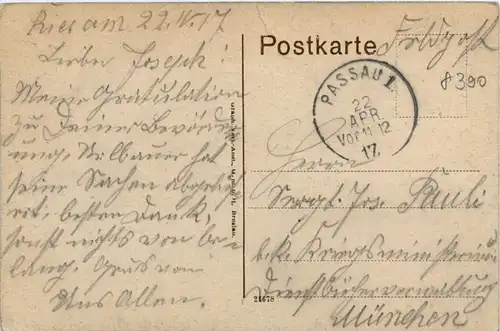 Ries am 22.IV.17
Lieber Joseph!
Meine Gratulation
zu Deiner Beförder
ung. Urlbauer hat
seine Sachen abgeholt
ert, besten Dank,
sonst nichts von Be
lang. Gruß von
Uns Allen.
Postkarte
Feldpost
8390
PASSAU 1.
22
APR.
Vor 11-12
17.
Herrn
Sergt. Jos. Pauli
b. k. Kriegsministerium
Dienstbücherverwaltung
München
21678